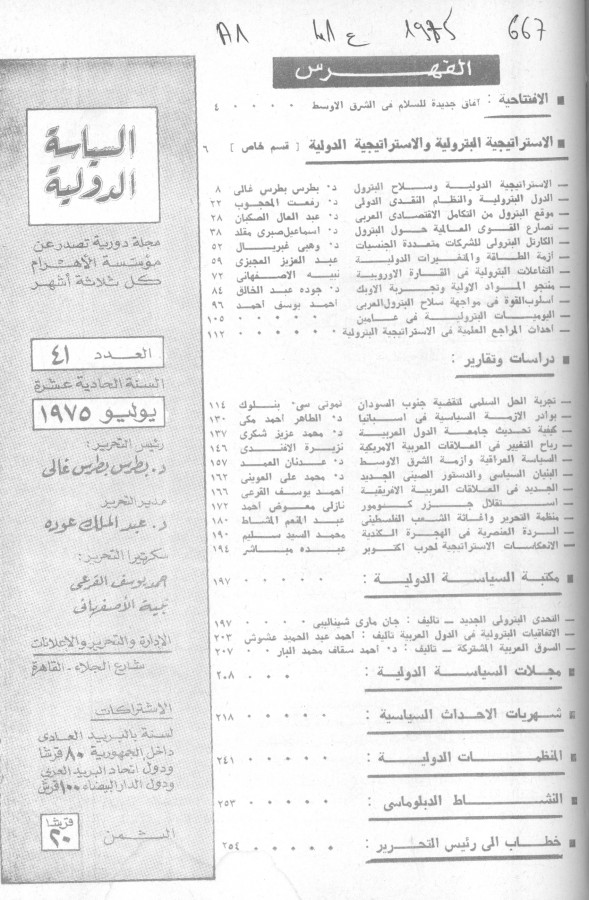 A1 ع ٤١ 1975 667
الفهرس
الافتتاحية : آفاق جديدة للسلام فى الشرق الاوسط ٠ ٠ ٠ ٠ ٤
الاستراتيجية البترولية والاستراتيجية الدولية [ قسم خاص ] ٦
— الاستراتيجية الدولية وسلاح البترول د٠ بطرس بطرس غالى ٨
— الدول البترولية والنظام النقدى الدولى د٠ رفعت المحجوب ٢٢
— موقع البترول من التكامل الاقتصادى العربى د٠ عبد العال الصكبان ٢٨
— تصارع القوى العالمية حول البترول د٠ اسماعيل صبرى مقلد ٣٨
— الكارتل البترولى للشركات متعددة الجنسيات د٠ وهبى غبريال ٥٢
— ازمة الطاقة والمتغيرات الدولية عبد العزيز العجيزى ٥٩
— التفاعلات البترولية فى القارة الاوروبية نبيه الاصفهانى ٧٢
— منتجو المواد الاولية وتجربة الاوبك د٠ جوده عبد الخالق ٨٤
— اسلوب القوة فى مواجهة سلاح البترول العربى احمد يوسف أحمد ٩٦
— اليوميات البترولية فى عامين ٠ ٠ ٠ ٠ ٠ ١٠٥
— احداث المراجع العلمية فى الاستراتيجية البترولية ٠ ٠ ٠ ٠ ٠ ١١٢
دراسات وتقارير :
— تجربة الحل السلمى لقضية جنوب السودان تموتى سى٠ بنلوك ١١٤
— بوادر الازمة السياسية فى اسبانيا د٠ الطاهر احمد مكى ١٣٠
— كيفية تحديث جامعة الدول العربية د٠ محمد عزيز شكرى ١٣٧
— رياح التغيير فى العلاقات العربية الامريكية نزيرة الافندى ١٤٦
— السياسة العراقية وازمة الشرق الاوسط د٠ عدنان العمد ١٥٧
— البنيان السياسى والدستور الصينى الجديد د٠ محمد على العوينى ١٦٢
— الجديد فى العلاقات العربية الافريقية أحمد يوسف القرعى ١٦٦
— استقلال جزر كومور نازلى معوض أحمد ١٧٢
— منظمة التحرير واغاثة الشعب الفلسطينى عبد المنعم المشاط ١٨٠
— الردة العنصرية فى الهجرة الكندية محمد السيد سليم ١٩٠
— الانعكاسات الاستراتيجية لحرب اكتوبر عبده مباشر ١٩٤
مكتبة السياسة الدولية : ٠ ٠ ٠ ٠ ٠ ١٩٧
— التحدى البترولى الجديد — تأليف : جان مارى شيفالييى ١٩٧
— الاتفاقيات البترولية فى الدول العربية تأليف : احمد عبد الحميد عشوش ٢٠٣
— السوق العربية المشتركة — تأليف : د٠ أحمد سقاف محمد البار ٠ ٠ ٢٠٧
مجلات السياسة الدولية : ٠ ٠ ٠ ٢٠٨
شهريات الاحداث السياسية : ٠ ٠ ٠ ٠ ٠ ٢١٨
المنظمات الدولية : ٠ ٠ ٠ ٠ ٠ ٢٤١
النشاط الدبلوماسى : ٠ ٠ ٠ ٠ ٠ ٢٥٣
خطاب الى رئيس التحرير : ٠ ٠ ٠ ٠ ٠ ٢٥٤
السياسة
الدولية
مجلة دورية تصدر عن
مؤسسة الأهرام
كل ثلاثة أشهر
العدد ٤١
السنة الحادية عشرة
يوليو ١٩٧٥
رئيس التحرير :
د. بطرس بطرس غالى
مدير التحرير
د. عبد الملك عوده
سكرتيرا التحرير :
احمد يوسف القرعى
نبيه الأصفهانى
الإدارة والتحرير والإعلانات
شارع الجلاء - القاهرة
الاشتراكات
لسنة بالبريد العادى
داخل الجمهورية ٨٠ قرشا
ودول اتحاد البريد العربى
ودول الدار البيضاء ١٠٠ قرش
الثمن ٢٠ قرشا